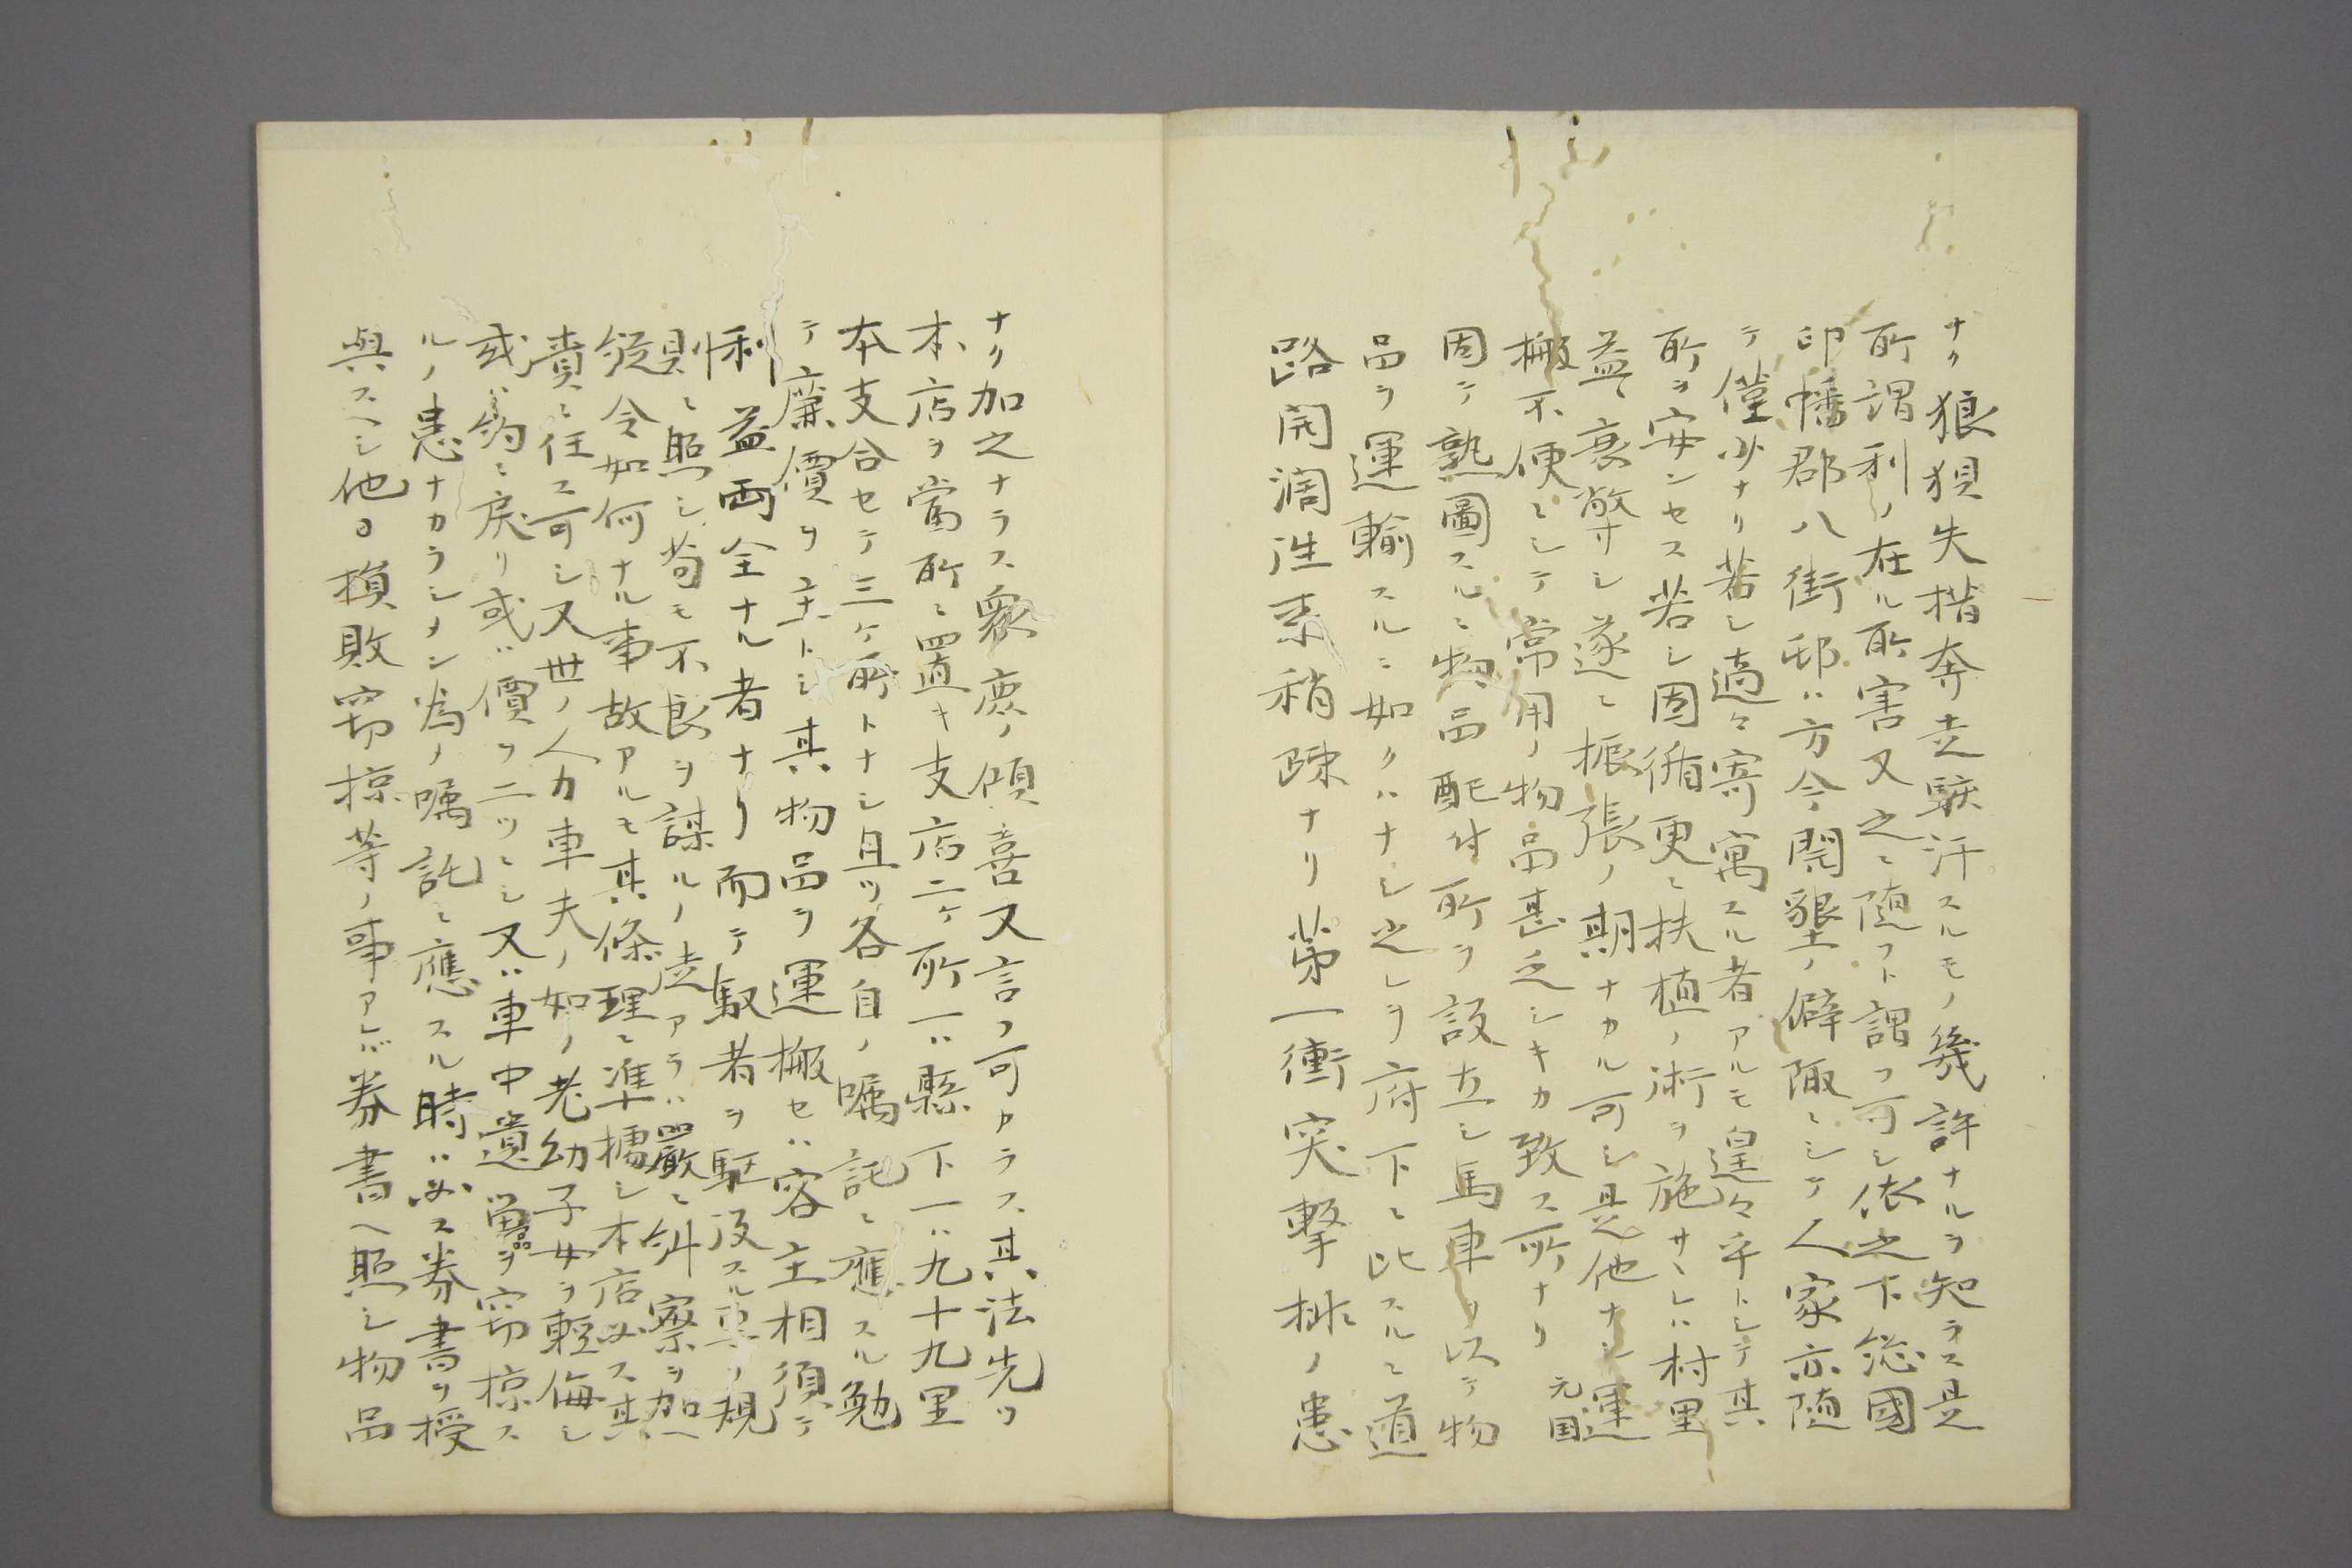 ナク狼狽失措奔走駭汗スルモノ幾許ナルヲ知ラス是
所謂利ノ在ル所害又之ニ随フト謂フ可シ依之下総國
印幡郡八街邨ハ方今開墾ノ僻陬ニシテ人家亦随
テ僅少ナリ若シ適々寄寓スル者アルモ遑々乎トシテ其
所ヲ安ンセス若シ因循更ニ扶植ノ術ヲ施サヽレハ村里
益衰弊シ遂ニ振張ノ期ナカル可シ是他ナシ運
搬不便ニシテ常用ノ物品甚乏シキカ致ス所ナリ元国
因テ熟圖スルニ物品配付所ヲ設立シ馬車ヲ以テ物
品ヲ運輸スルニ如クハナシ之レヲ府下ニ比スルニ道
路開濶往来稍疎ナリ第一衝突撃排ノ患
ナク加之ナラス衆庶ノ傾喜又言フ可カラス其法先ツ
本店ヲ當所ニ置キ支店二ケ所一ハ縣下一ハ九十九里
本支合セテ三ケ所トナシ且ツ各自ノ嘱託ニ應スル勉
テ廉價ヲ主トシ其物品ヲ運搬セハ客主相須テ
利益両全ナル者ナリ而テ馭者ヲ駆役スル専ラ規
則ニ照シ苟モ不良ヲ謀ルノ徒アラハ嚴ニ糾察ヲ加ヘ
縦令如何ナル事故アルモ其條理ニ準據シ本店必ス其
責ニ任ス可シ又世ノ人力車夫ノ如ク老幼子女ヲ輕侮シ
或ハ約ニ戻リ或ハ價ヲ二ツニシ又ハ車中遺嚢ヲ窃掠ス
ルノ患ナカラシメン為メ嘱託ニ應スル時ハ必ス券書ヲ授
與スヘシ他日損敗窃掠等ノ事アレハ券書ヘ照シ物品